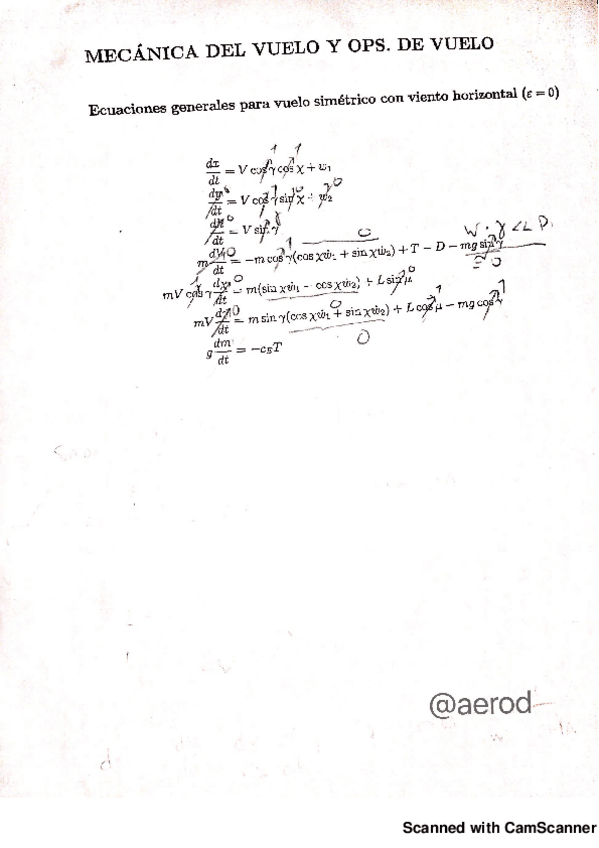 MECÁNICA DEL VUELO Y OPS. DE VUELO
Ecuaciones generales para vuelo simétrico con viento horizontal (ε = 0)
1 1
dx/dt = V cos γ cos χ + w₁
dy/dt = V cos γ sin χ + w₂
dh/dt = V sin γ
W · γ << D.
m dV/dt = −m cos γ(cos χẇ₁ + sin χẇ₂) + T − D − mg sin γ
≅ 0
mV cos γ dχ/dt = m(sin χẇ₁ − cos χẇ₂) + L sin μ
mV dγ/dt = m sin γ(cos χẇ₁ + sin χẇ₂) + L cos μ − mg cos γ
0
g dm/dt = −c_E T
@aerod
Scanned with CamScanner